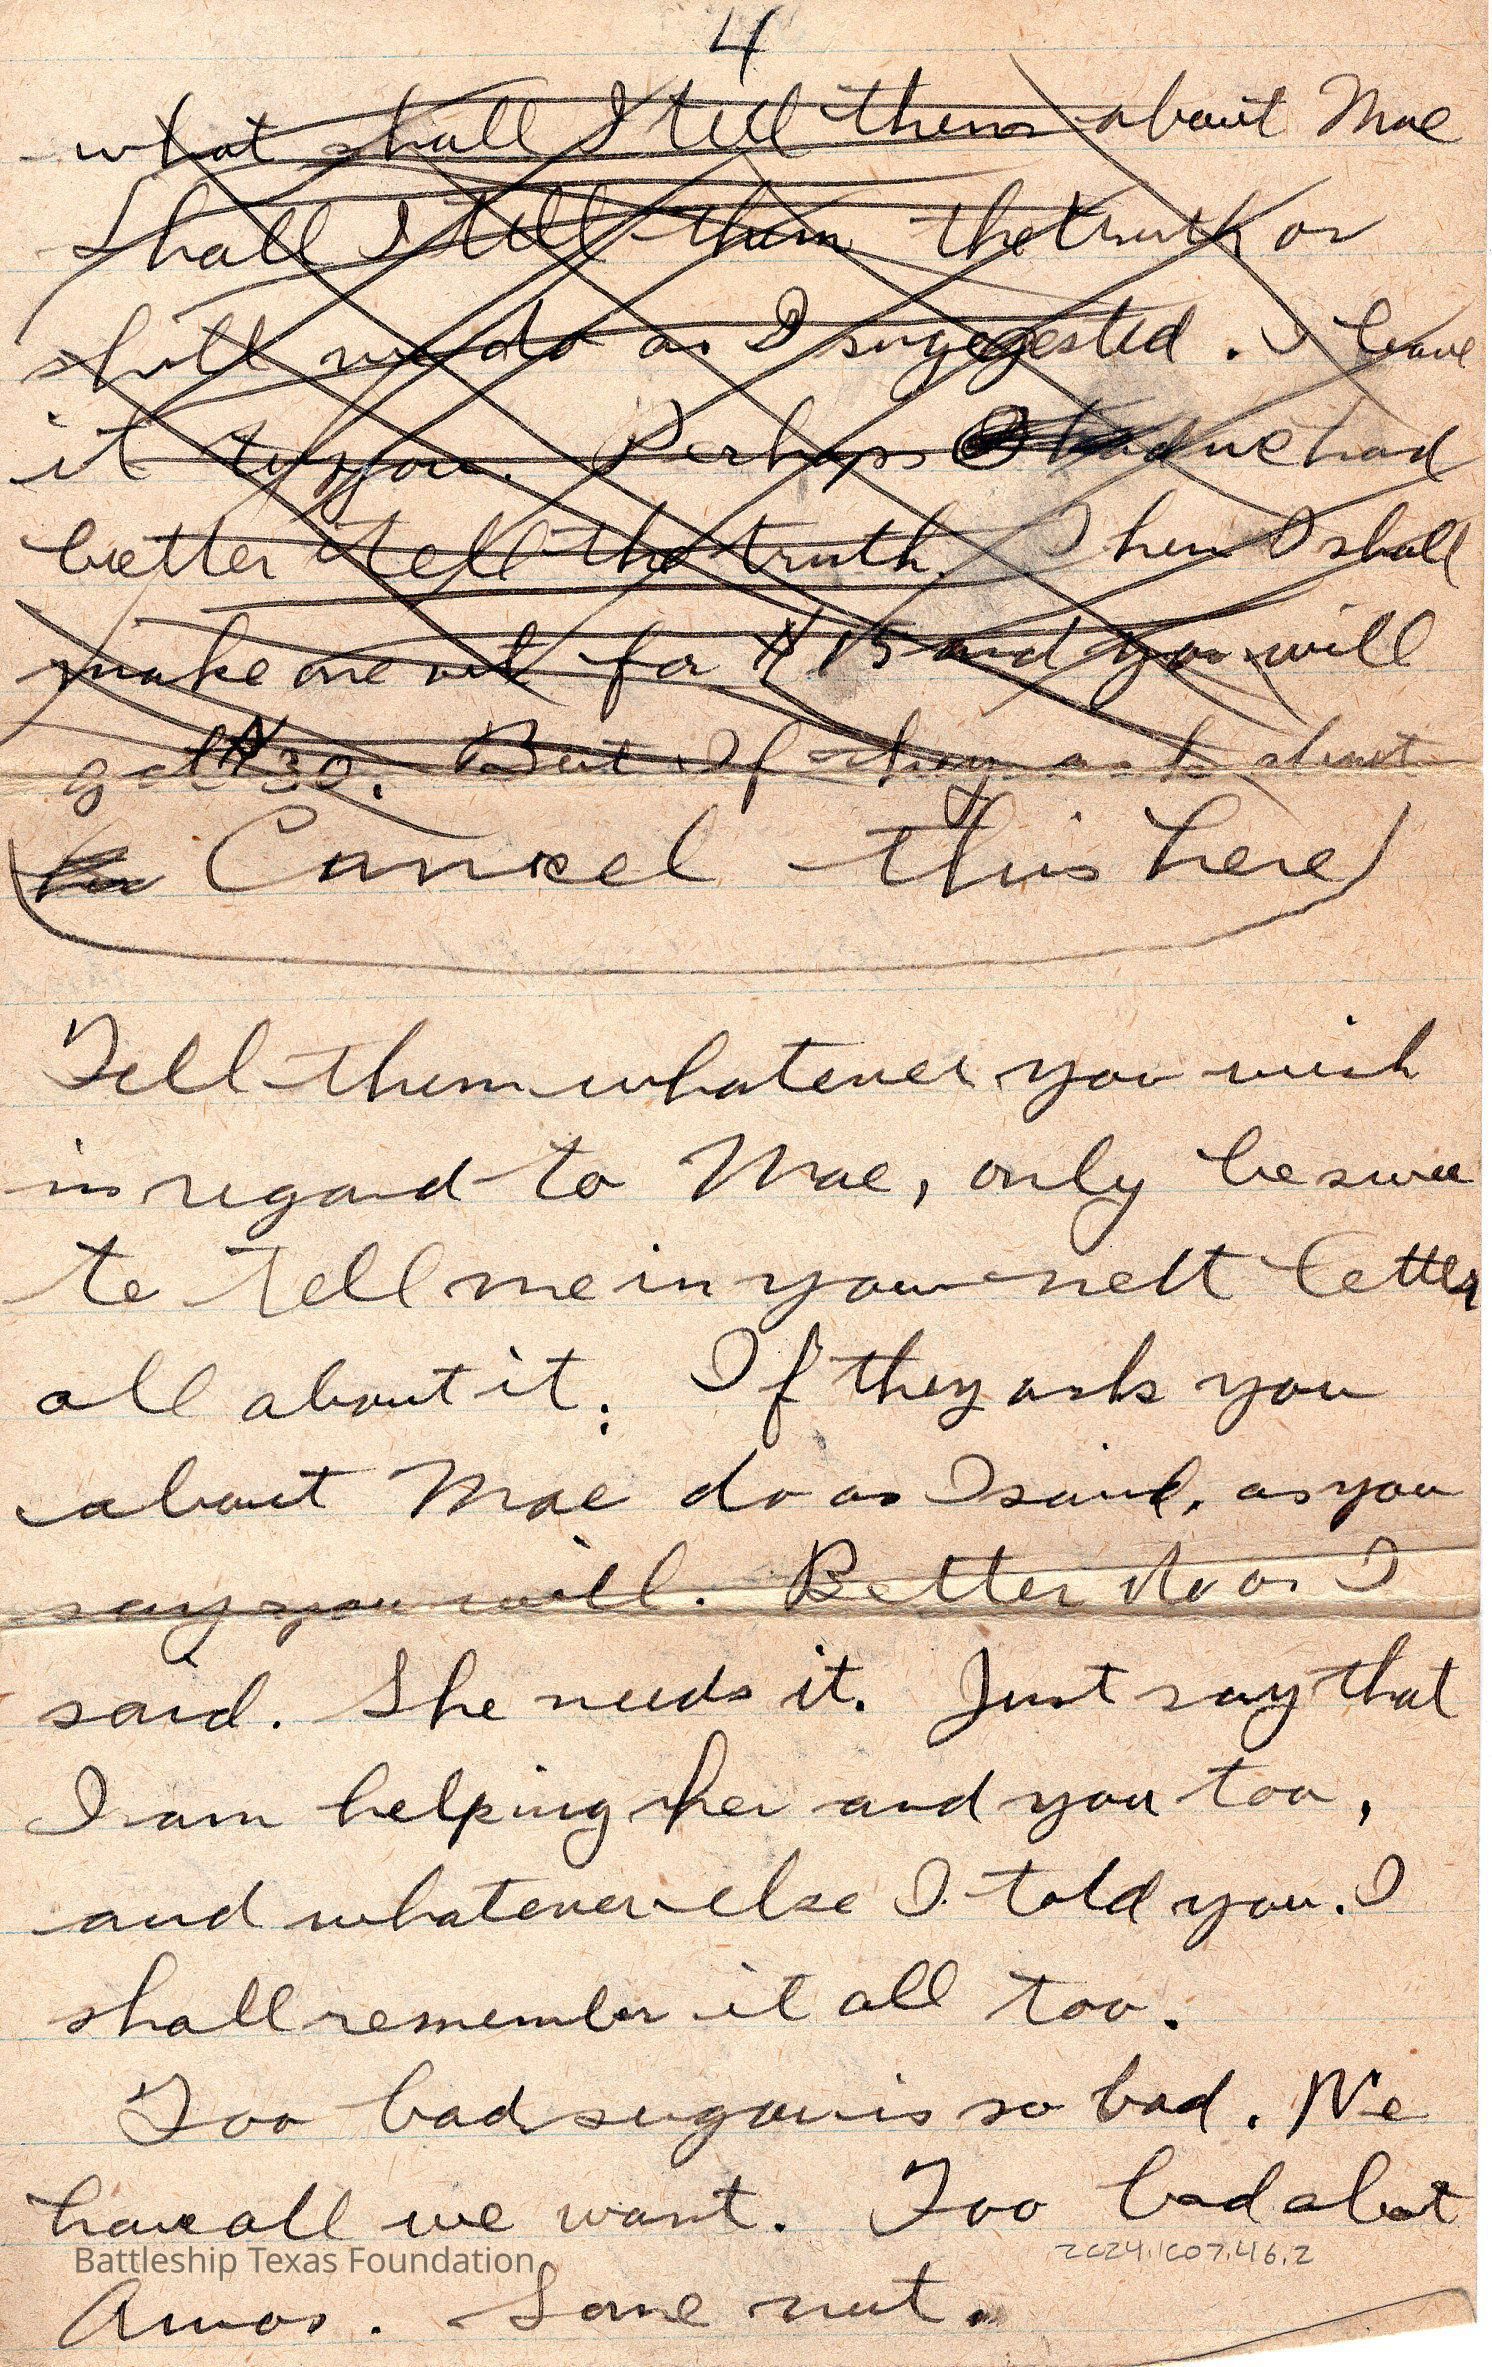 4
what shall I tell them about Mae
Shall I tell them the truth or
shall we do as I suggested. I leave
it to you. Perhaps I had we had
better tell the truth. Then I shall
make one out for $15 and you will
get $30. But If they ask about
Cancel this here)
Tell them whatever you wish
in regard to Mae, only be sure
to tell me in your next letter
all about it. If they ask you
about Mae do as I said, as you
say you will. Better do as I
said. She needs it. Just say that
I am helping her and you too,
and whatever else I told you. I
shall remember it all too.
Too bad sugar is so bad. We
have all we want. Too bad about
Battleship Texas Foundation
2024.007.46.2
Amos. Some nut.